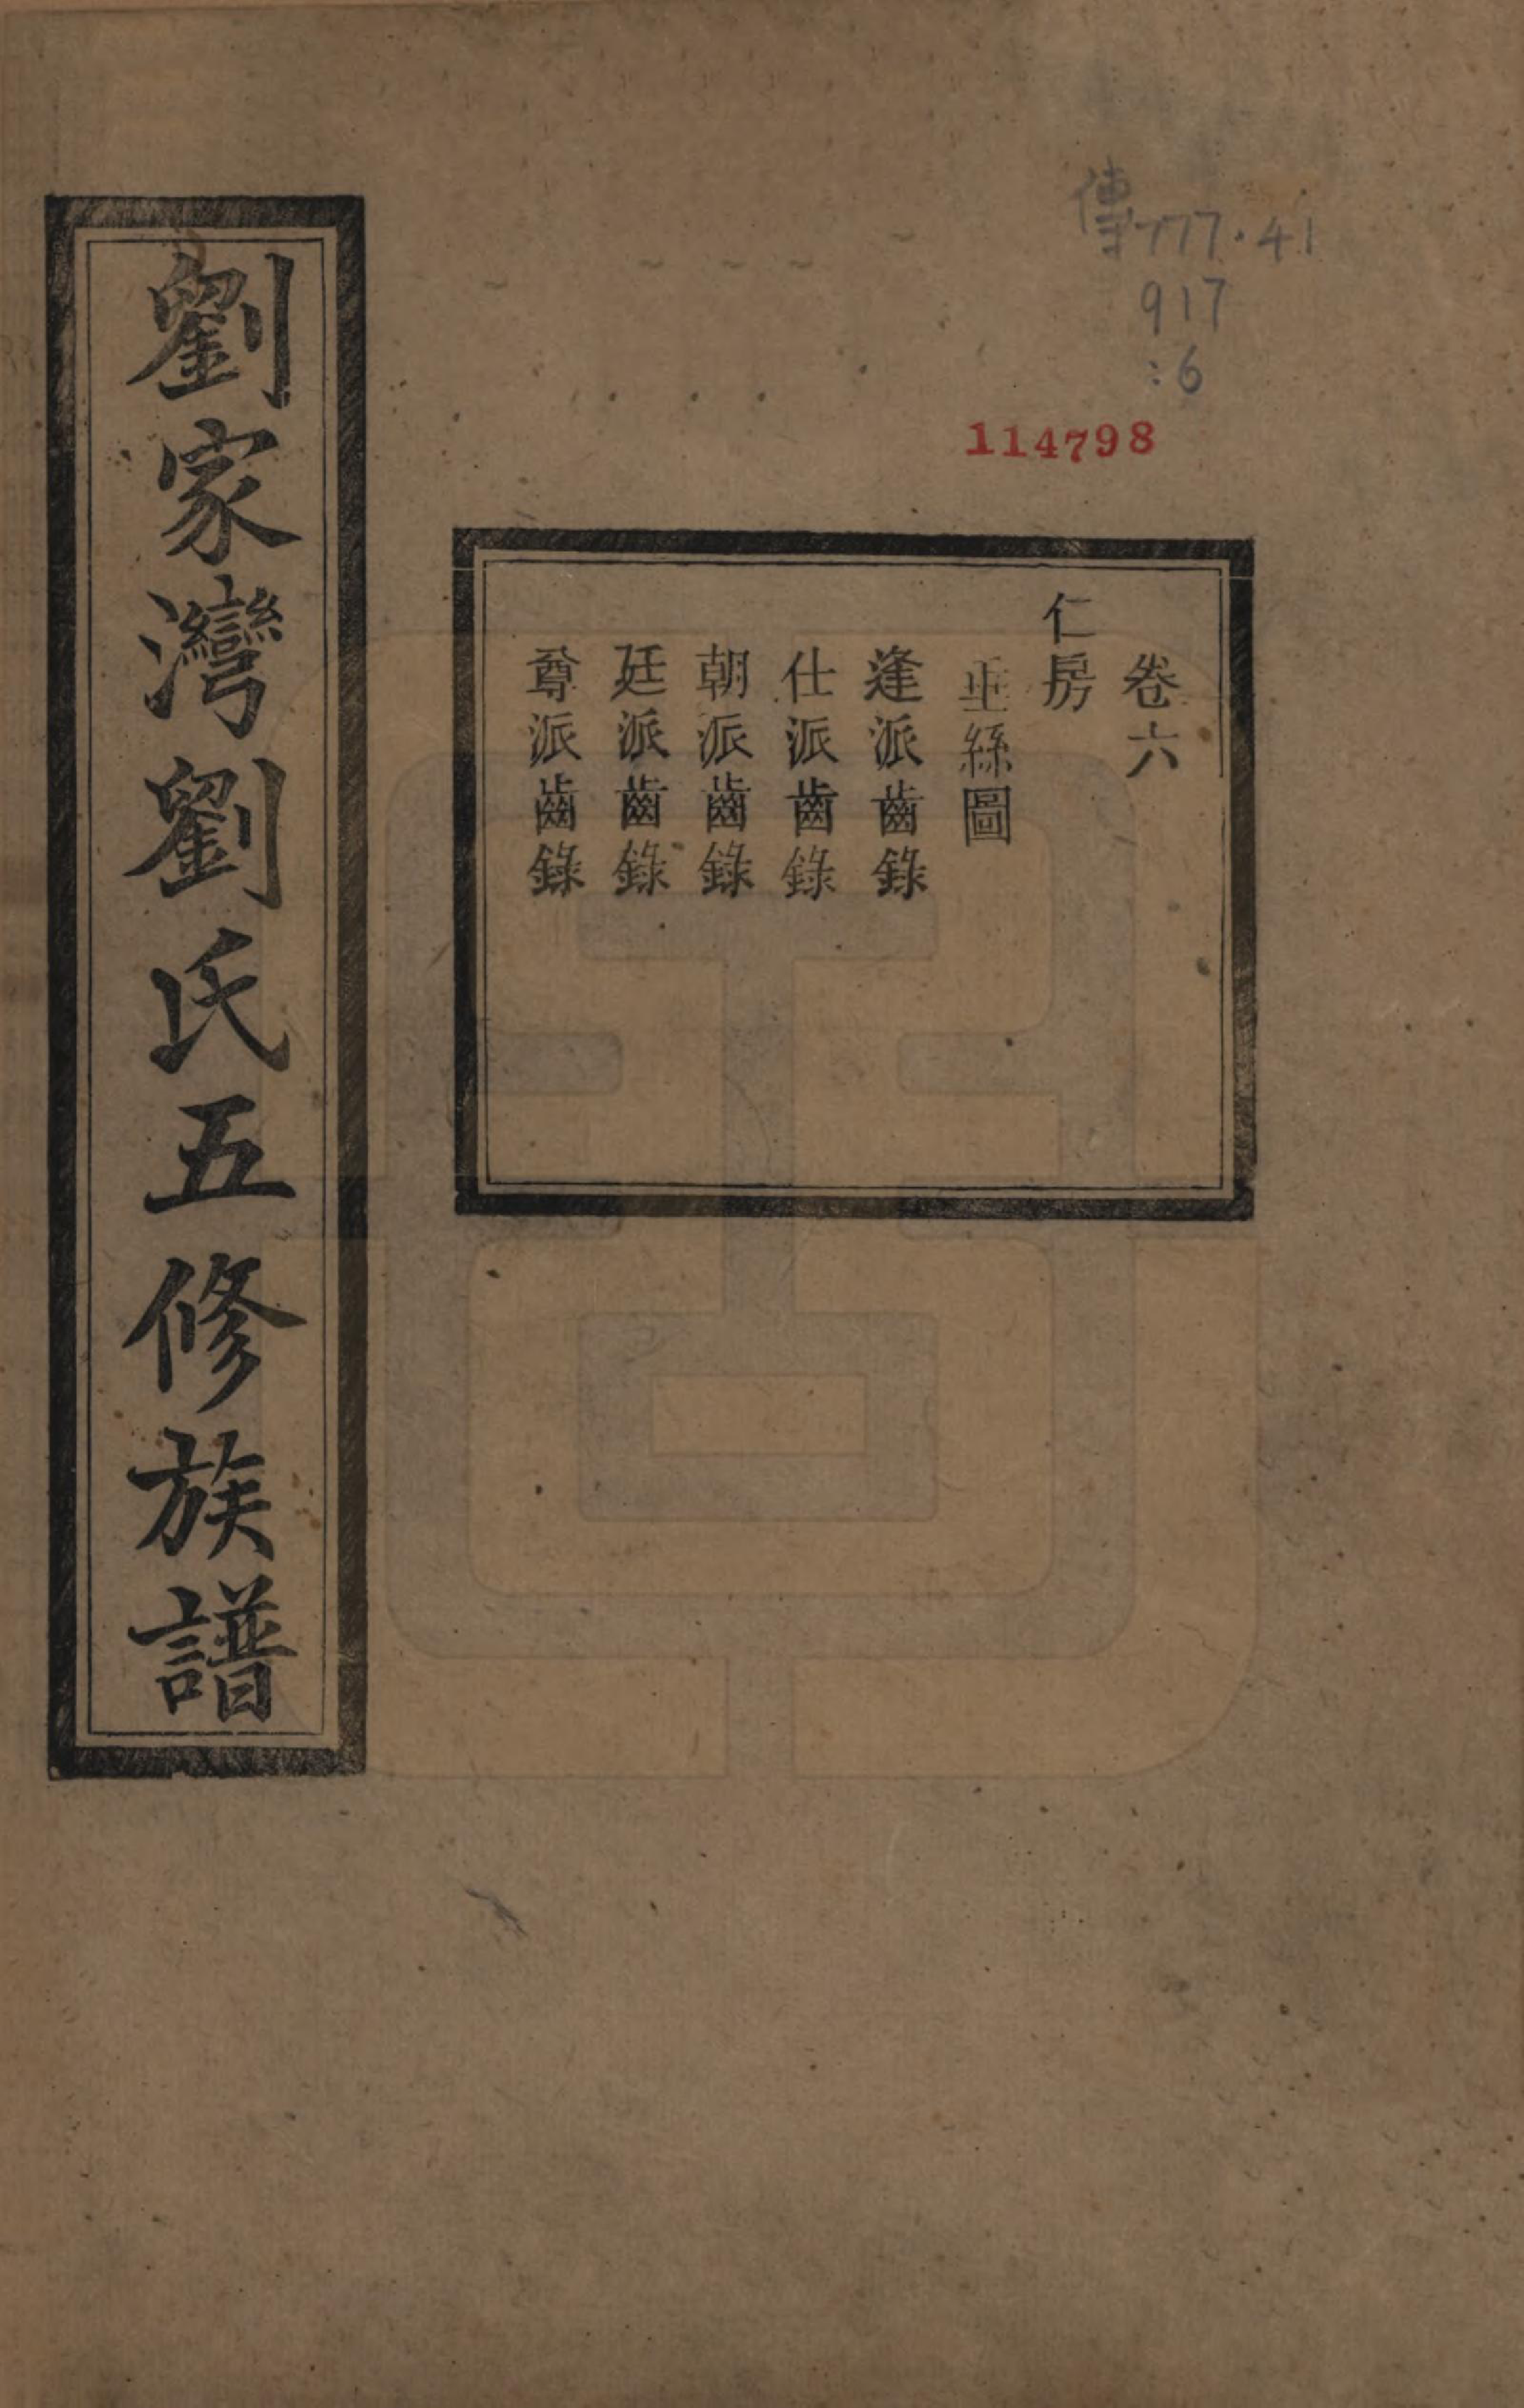 傳777.41
917
:6
114798
卷六
仁房
垂絲圖
逢派齒錄
仕派齒錄
朝派齒錄
廷派齒錄
尊派齒錄
劉家灣劉氏五修族譜